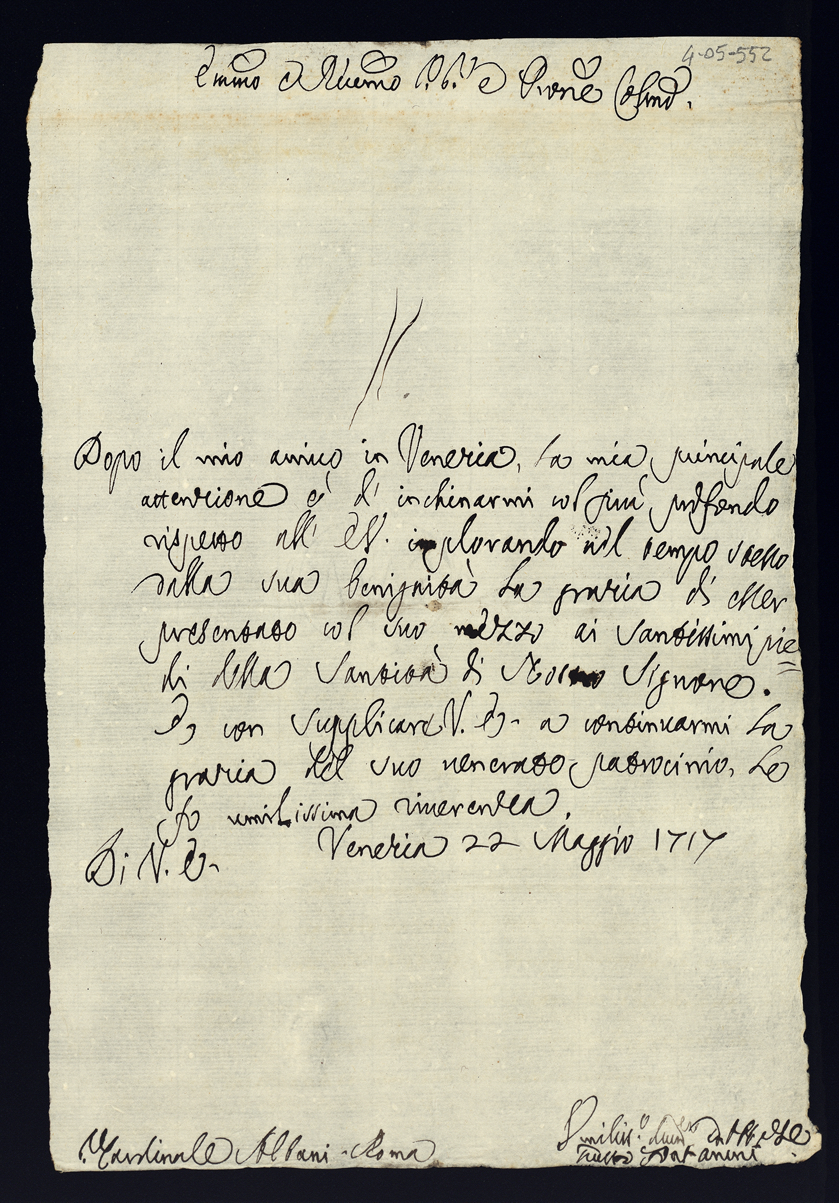 4-05-552
Emmo e Ruemo Sig.r e Prone Colmo.
Dopo il mio arrivo in Venezia, la mia principale
attenzione è d' inchinarmi col più profondo
rispetto all' E.V. implorando nel tempo stesso
dalla sua benignità la grazia di esser
presentato col suo mezzo ai Santissimi pie=
di della Santità di Nostro Signore.
E con supplicare V. E. a continuarmi la
grazia del suo venerato patrocinio, le
fo umilissima riverenza.
Di V. E. Venezia 22 Maggio 1717
Cardinale Albani - Roma
Umiliss.o
Giusto Fontanini